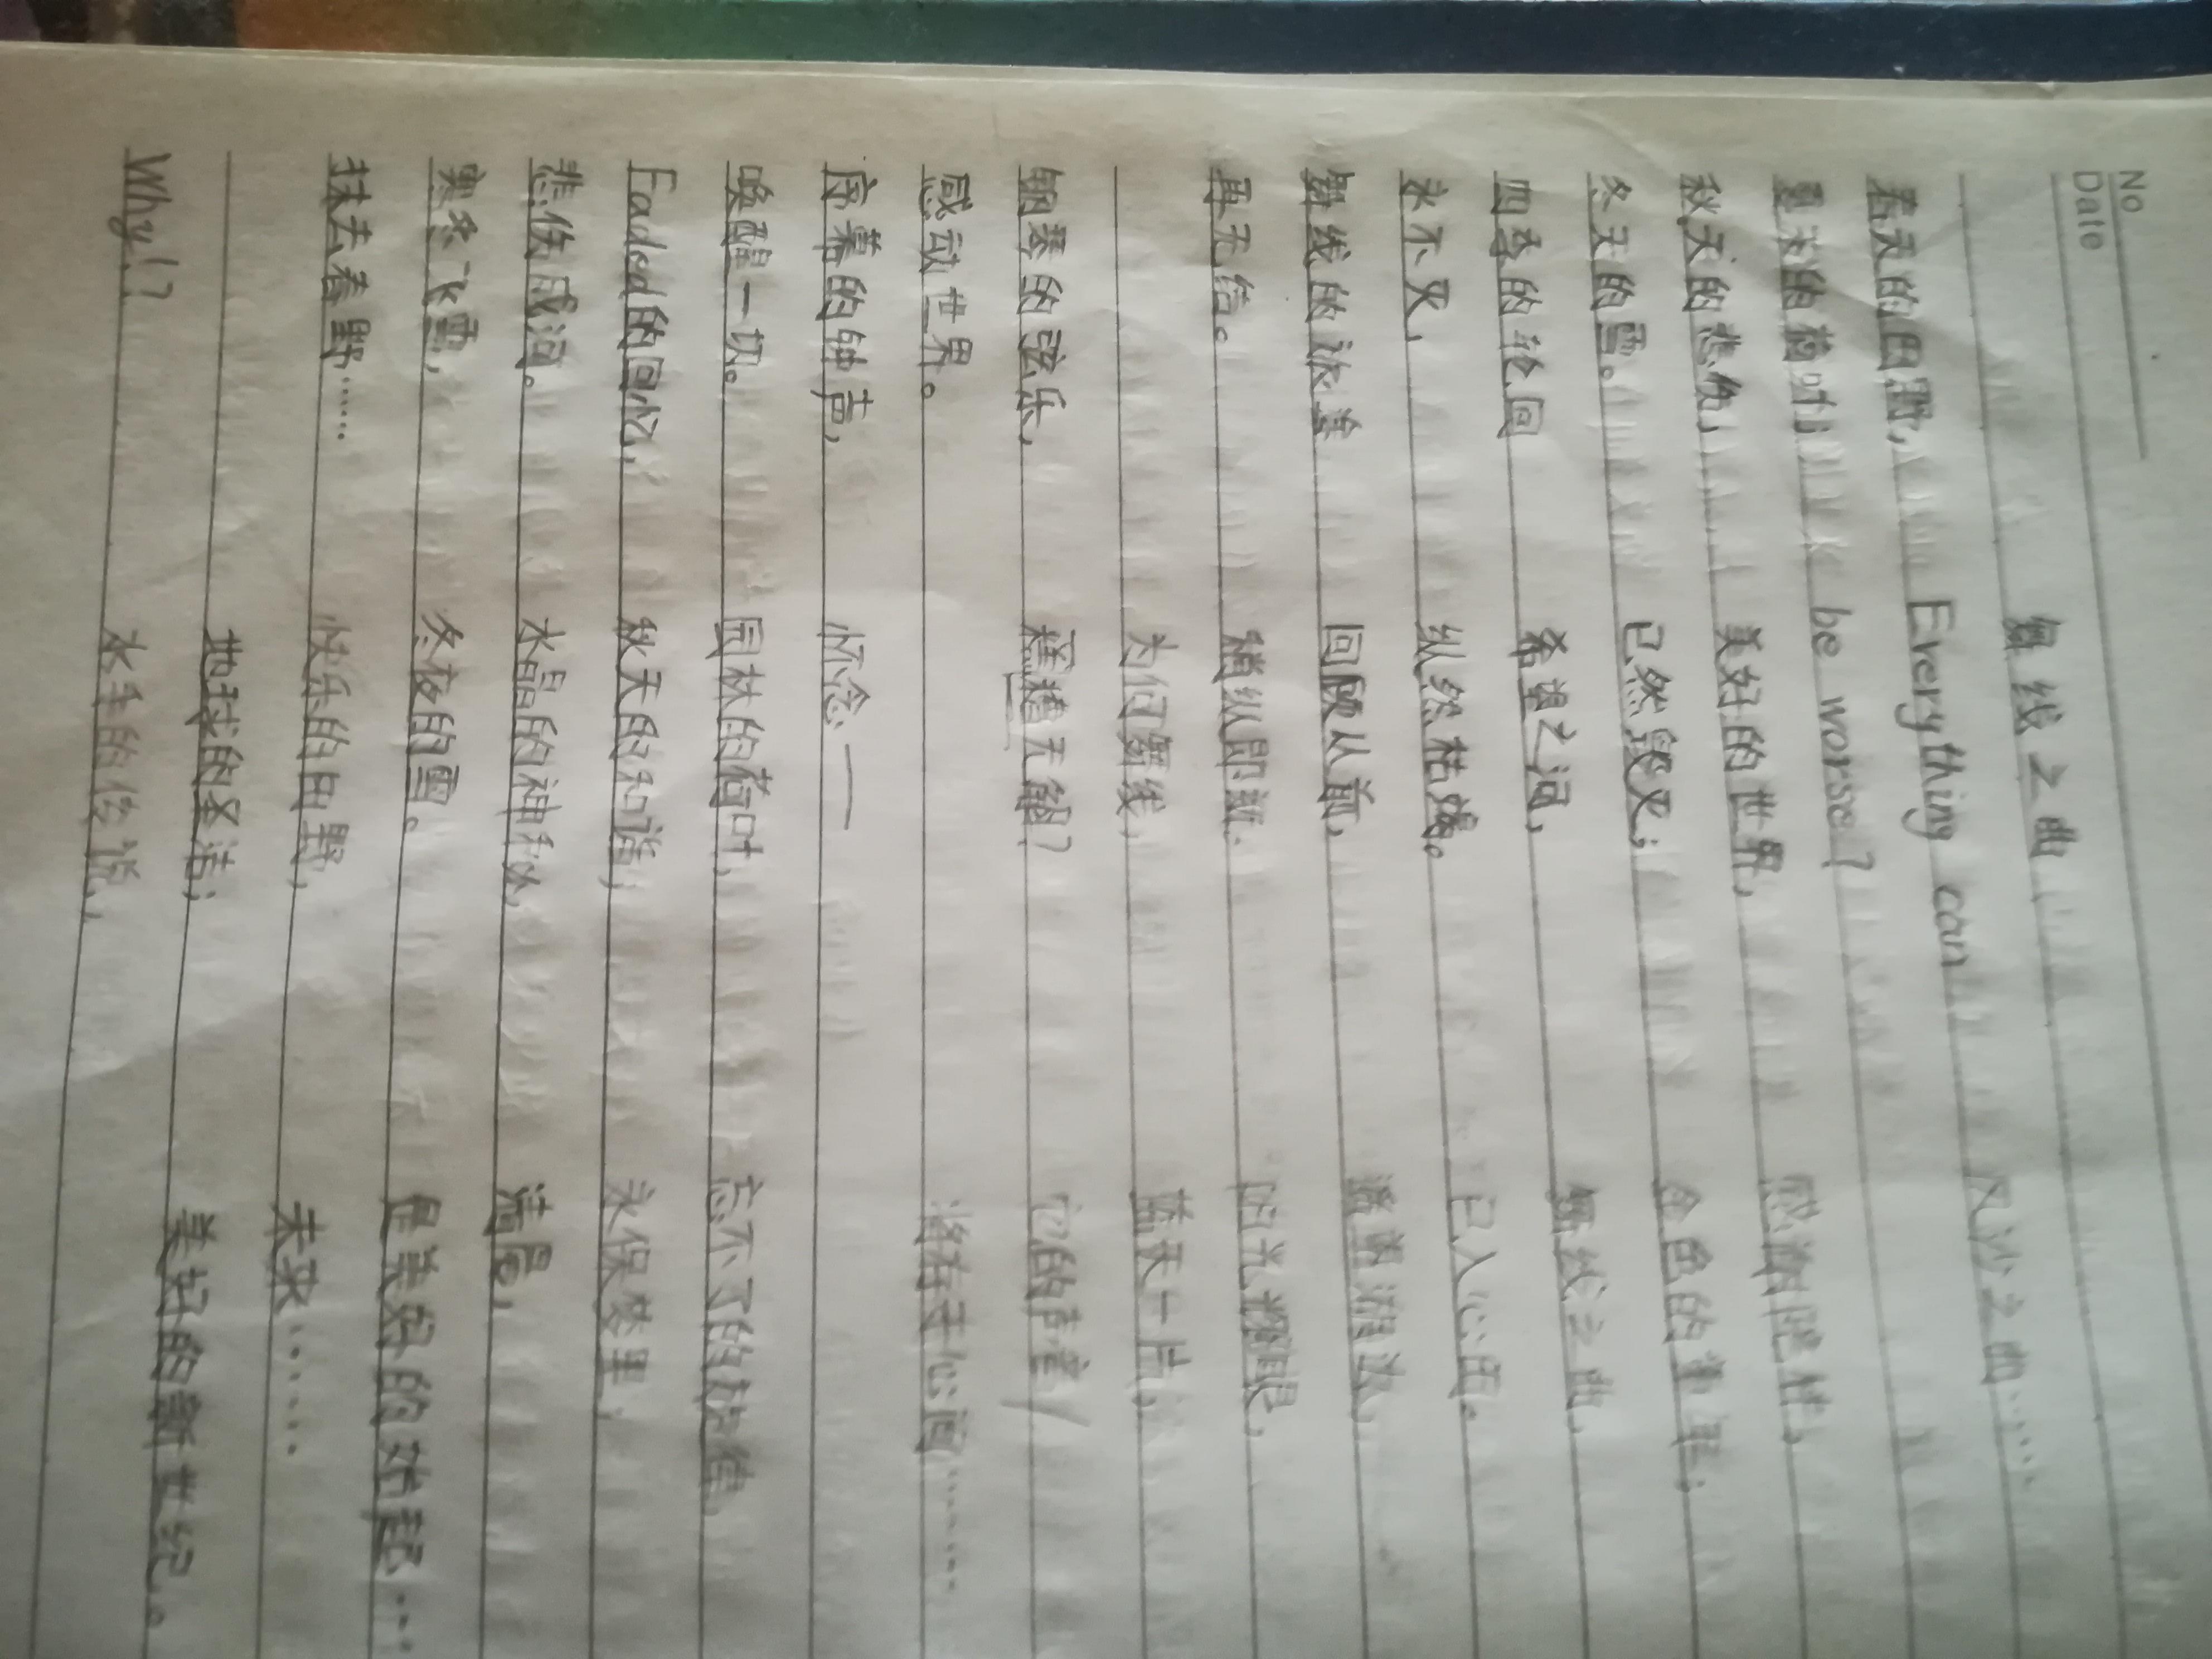 No
Date
舞线之曲
春天的田野,
夏天的荷叶,
秋天的悲伤,
冬天的雪。
四季的轮回
永不灭,
舞线的旅
再无结。
钢琴的弦乐,
感动世界。
序幕的钟声,
唤醒一切。
Faded的回忆,
悲伤成河。
寒冬飞雪,
抹去春野……
Why!?
Everything can
be worse?
美好的世界,
已然毁灭;
希望之河,
纵然枯竭。
回顾从前,
稍纵即逝.
为何舞线,
无解?
怀念——
园林的荷叶,
秋天的和谐;
水晶的神秘,
冬夜的雪。
快乐的田野,
地球的圣洁;
水手的传说,
风沙之曲……
金色的
舞线之曲,
已入心田。
的光耀眼,
蓝天一片,
它的声音
于心间……
忘不了的
永保
清晨,
是美好的
未来……
美好的新世纪。